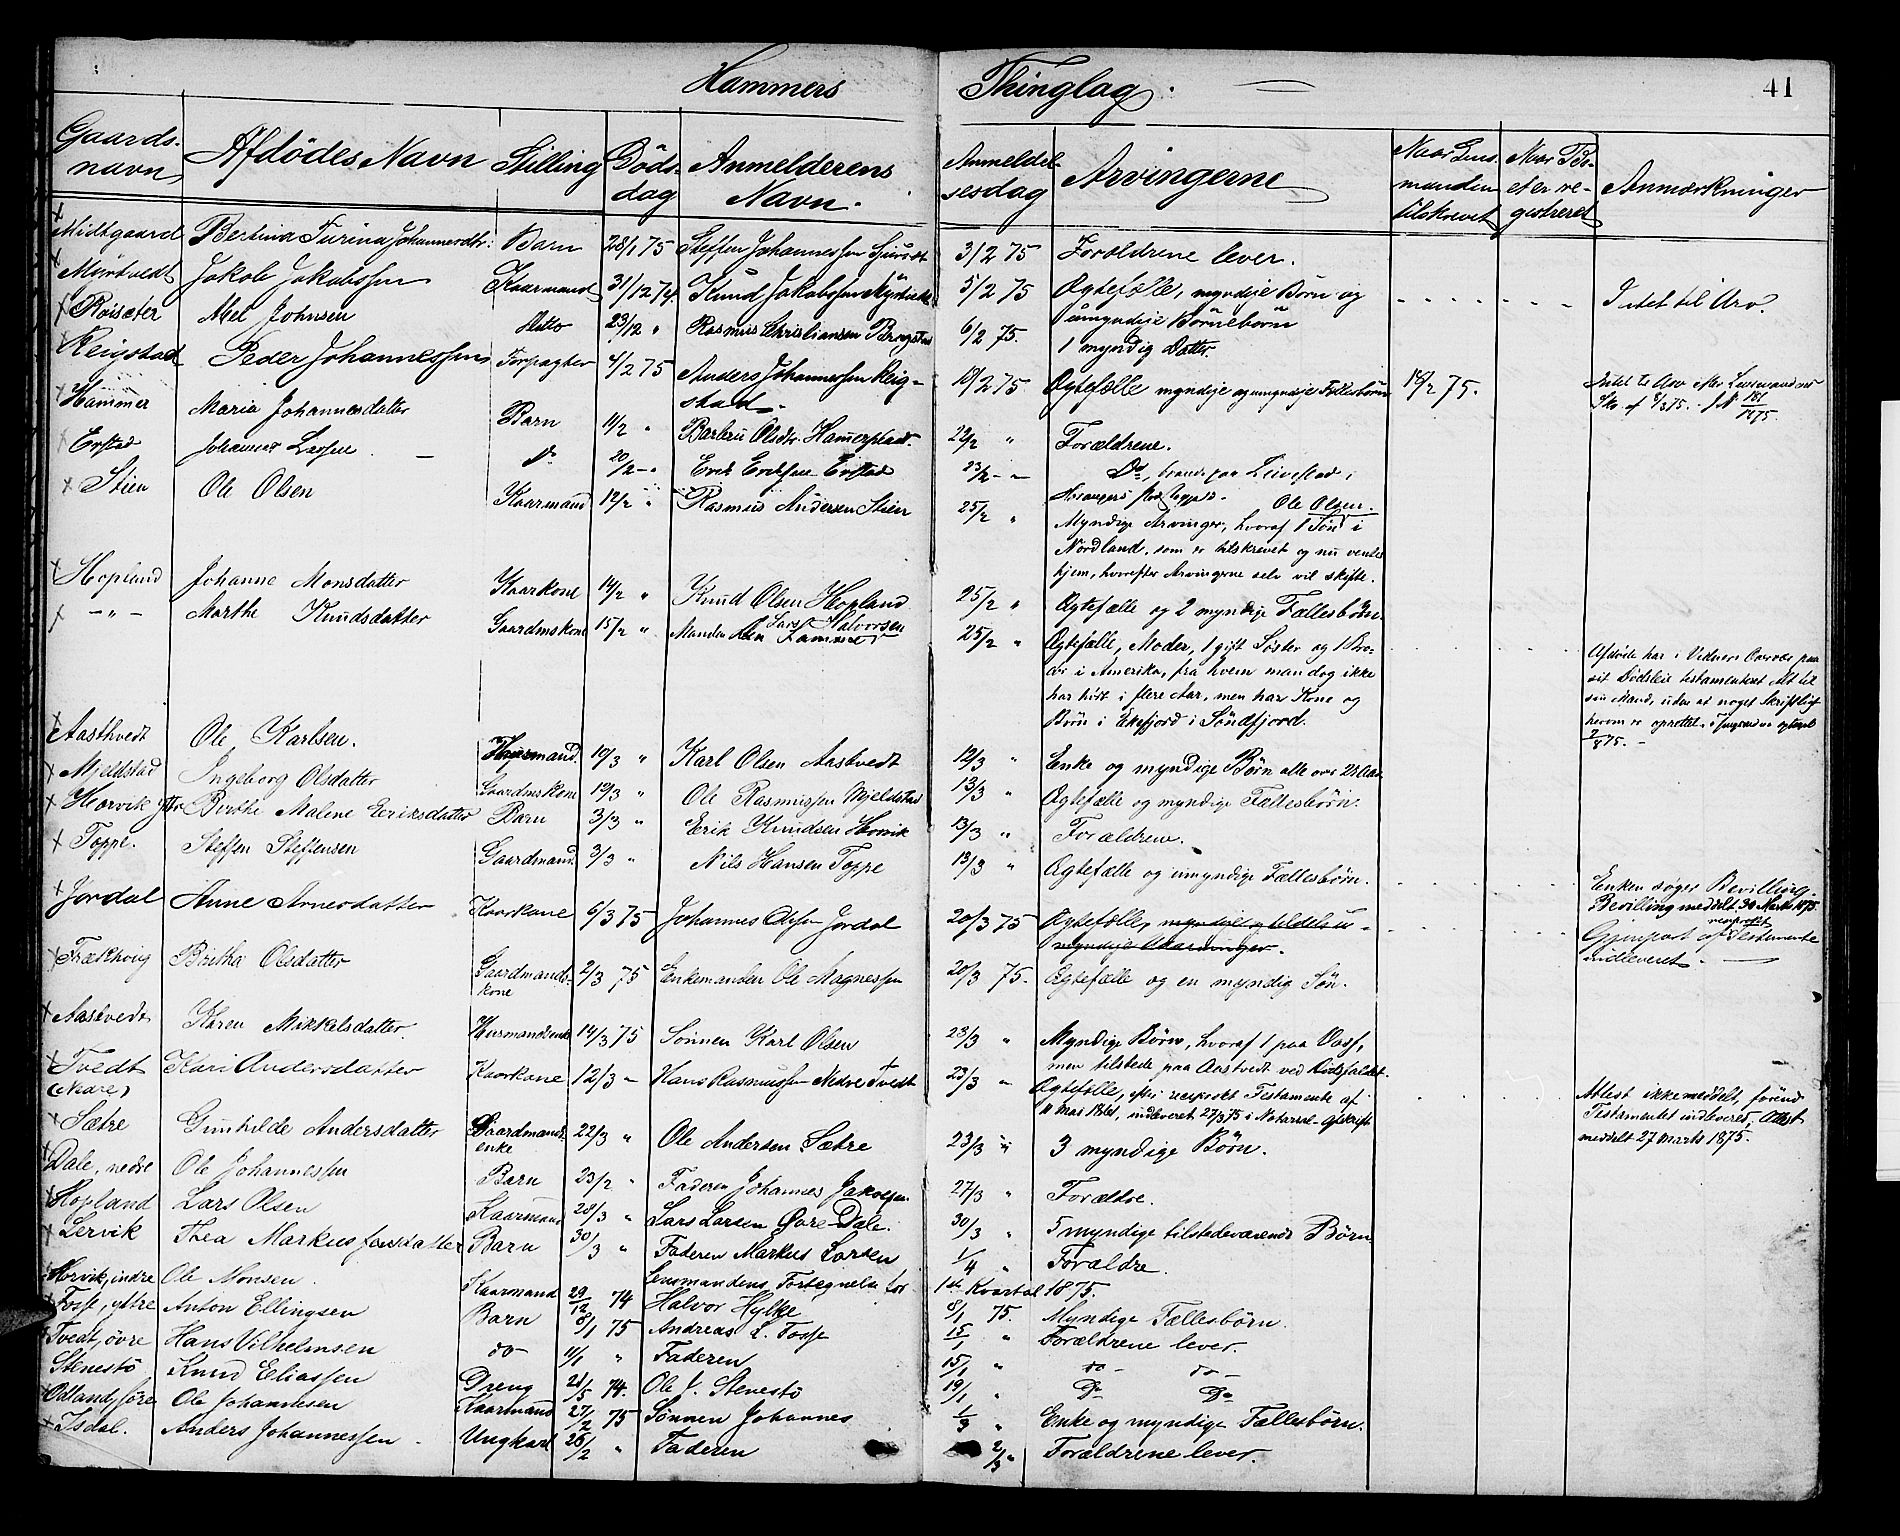 Hammers Thinglag.
41
Gaards-navn Afdödes Navn Stilling Döds-dag Anmelderens Navn. Anmeldel-sesdag Arvingerne Naar Lens-manden tilskrevet Naar Bo-et er re-gistreret Anmærkninger
Midtgaard Bertina Turina Johannesdtr: Barn 28/1 75 Steffen Johannessen 3/2 75 Forældrene lever.
Myrtvedt Jakob Jakobssen Kaarmand 31/12 74 Knud Jakobssen Myrtvedt 5/2 75 Ægtefælle, myndige Börn og
umyndige Börnebörn
Intet til Arv.
Röisæter Mel Johnsen ditto 23/12 " Rasmus Christiansen 6/2 75. 1 myndig Datter.
Reigstad Peder Johannessen Forpagter 4/2 75 Anders Johannessen Reig-
stad.
18/2 75 Ægtefælle myndige og umyndige Fællesbörn 18/2 75.
Intet til Arv
Hammer Maria Johannesdatter Barn 11/2 " Barbru Olsdtr. 22/2 " Forældrene.
Erstad Johannes Larsen Do 20/2 - " Erik Eriksen Erstad 23/2 - " Do,
Stien Ole Olsen Kaarmand 12/2 " Rasmus Andersen Stien 25/2 " Ole Olsen.
Myndige Arvinger, hvoraf 1 Sön i
Nordland, som er tilskrevet og nu ventes
hjem, hvorefter Arvingerne selv vil skifte.
Hopland Johanne Monsdatter Kaarkone 14/2 " Knud Olsen Hopland 25/2 " Ægtefælle og 2 myndige Fællesbörn.
- " - Marthe Knudsdatter Gaardmskone 15/2 " Manden Lars Halvorsen 25/2 " Ægtefælle, Moder, 1 gift Söster og 1 Bro-
der i Amerika, fra hvem man dog ikke
har hört i flere Aar, men har Kone og
Börn i Eikefjord i Söndfjord.
Afdöde har i Vidners Overvær paa
sit Dödsleie testamenteret Alt til
sin Mand, uden at noget Skriftligt
herom er oprettet.
Aastvedt Ole Karlsen. Husmand 10/3 " Karl Olsen Aastvedt 12/3 " Enke og myndige Börn alle over
Mjeldstad Ingeborg Olsdatter Gaardmskone 10/3 " Ole Rasmussen Mjeldstad 13/3 " Ægtefælle og myndige Fællesbörn.
Horvik ytre Birthe Malene Eriksdatter Barn 3/3 " Erik Knudsen Horvik 13/3 " Forældrene.
Toppe. Steffen Steffensen Gaardmand. 3/3 " Nils Hansen Toppe 13/3 " Ægtefælle og umyndige Fællesbörn.
Jordal Anne Arnesdatter Kaarkone 6/3 75 Johannes Olssen Jordal 20/3 75 Ægtefælle, myndige og tildels u-
myndige
Enken söger Bevilling.
Bevilling meddelt 30 Marts 1875.
Gjenpart af reciprokt Testamente
indleveret.
Trækhvig Britha Olsdatter Gaardmands-
kone
2/3 75 Enkemanden Ole Magnessen 20/3 75. Ægtefælle og en myndig Sön.
Aastvedt Karen Mikkelsdatter. Husmandsenke 14/3 75 Sönnen Karl Olsen 23/3 " Myndige Börn, hvoraf 1 paa Voss,
men tilstede paa Aastvedt ved Dödsfaldet.
Tvedt
(nedre)
Kari Andersdatter Kaarkone 12/3 " Hans Rasmussen Nedre Tvedt 23/3 " Ægtefælle, efter reciprokt Testamente af
11 Mai 1861, indleveret 27/3 75 i Notarial-Afskrift
Attest ikke meddelt, förend
Testamentet indleveret, Attest
meddelt 27 Marts 1875.
Sætre Gunhilde Andersdatter Gaardmands-
enke
22/3 " Ole Andersen Sætre 23/3 " 3 myndige Börn.
Dale, nedre Ole Johannessen Barn 23/2 " Faderen Johannes Jakobsen 27/3 " Forældre.
Hopland Lars Olsen Kaarmand 28/3 " Lars Larsen Övre-Dale. 30/3 " 5 myndige tilstedeværende Börn
Lervik Thea Markusfensdatter Barn 30/3 " Faderen Markus Larsen 1/4 " Forældre.
Lensmandens Fortegnelse for 1ste Kvartal 1875.
Horvik, indre Ole Monsen. Kaarmand 29/12 74 Halvor Hylke 8/1 75. Myndige Fællesbörn.
Fosse, ytre Anton Ellingsen Barn 8/1 75 Andreas L. Fosse 15/1 " Forældrene lever.
Tvedt, övre Hans Vilhelmsen do 11/1 " Faderen 15/1 " do - do -
Stenestö Knud Eliassen Dreng 21/5 74. Ole J. Stenestö 19/1 " Do Do
Odland, söre Ole Johannesen Kaarmand 27/2 75 Sönnen Johannes 1/3 " Enke og myndige Fællesbörn.
Isdal. Anders Johannessen Ungkarl 26/2 " Faderen 2/3 " Forældrene lever.